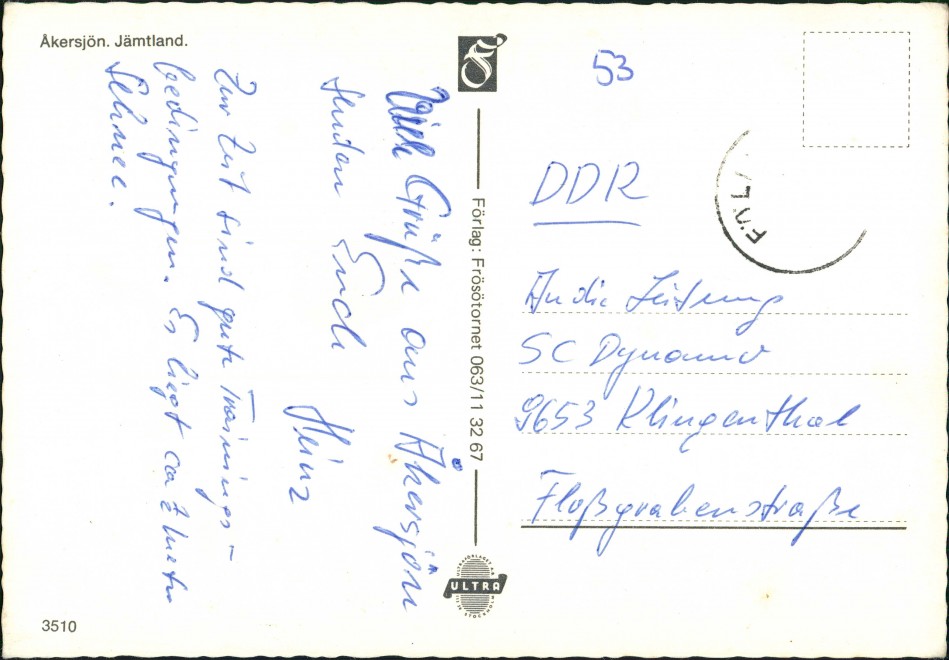 Åkersjön. Jämtland.
Viele Grüße aus Åkersjön
senden Euch
Heinz
Zur Zeit sind gute Trainings-
bedingungen. Es liegt ca 2 Meter
Schnee.
3510
Förlag: Frösötornet 063/11 32 67
ULTRA
53
DDR
An die Leitung
SC Dynamo
9653 Klingenthal
Floßgrabenstraße